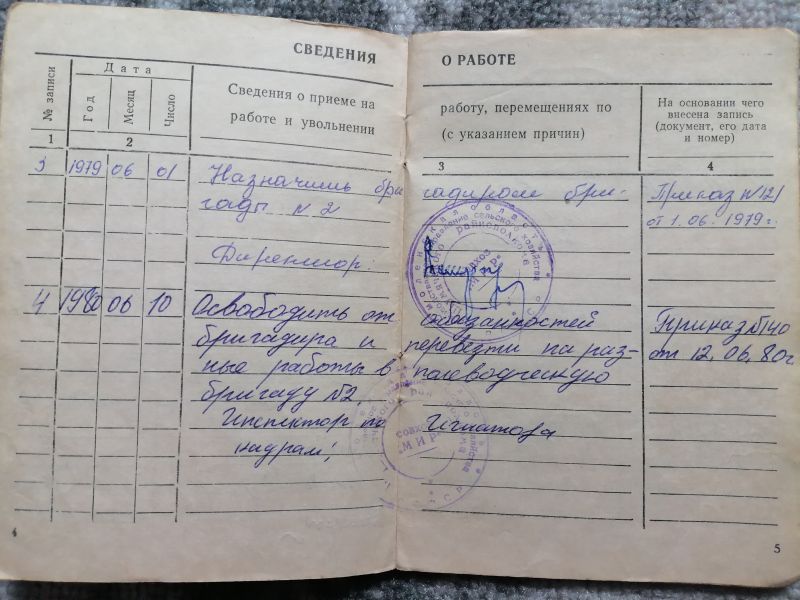 СВЕДЕНИЯ О РАБОТЕ
№ записи
Дата
Год
Месяц
Число
Сведения о приеме на работу, перемещениях по
работе и увольнении (с указанием причин)
На основании чего
внесена запись
(документ, его дата
и номер)
1 2 3 4
3 1979 06 01 Назначить бригадиром бри- Приказ №121
гады №2 от 1.06.1979г.
Директор:
совхоз
"МИР"
4 1980 06 10 Освободить от обязанностей Приказ №140
бригадира и перевезти на раз- от 12.06.80г
ные работы в полеводческую
бригаду №2.
Инспектор по Игнатова
кадрам:
совхоз
"МИР"
4
5